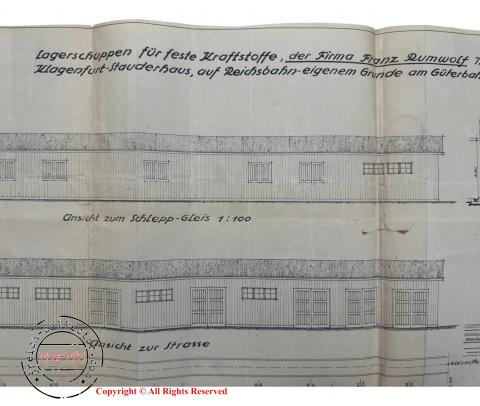 Lagerschuppen für feste Kraftstoffe, der Firma Franz Rumwolf
Klagenfurt-Stauderhaus, auf Reichsbahn-eigenem Grunde am Güterbah
Ansicht zum Schlepp-Gleis 1:100
Ansicht zur Strasse
Copyright © All Rights Reserved